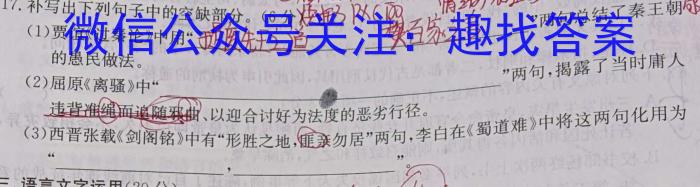 17.补写出下列句子中的空缺部分。(6
(1)贾谊《过秦论》中用“ ”两句总结了秦王朝
微信公众号关注：趣找答案
的愚民做法。
(2)屈原《离骚》中“ ”两句，揭露了当时庸人
违背准绳而追随邪曲、以迎合讨好为法度的恶劣行径。
(3)西晋张载《剑阁铭》中有“形胜之地，匪亲勿居”两句，李白在《蜀道难》中将这两句化用为
“ ， ”
三、语言文字运用(20分)